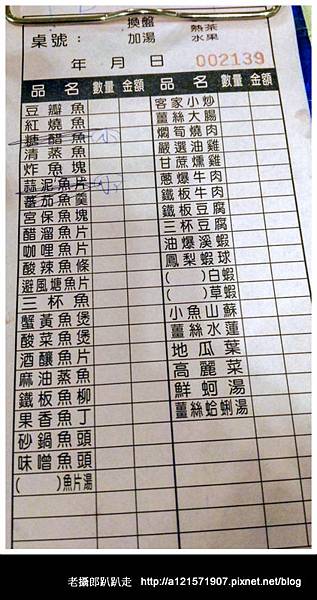 換盤 熱茶
桌號： 加湯 水果
年 月 日 002139
品名 數量 金額 品名 數量 金額
豆瓣魚
紅燒魚
糖醋魚 小
清蒸魚
炸魚塊
蒜泥魚片 小
蕃茄魚羹
宮保魚塊
醋溜魚片
咖哩魚片
酸辣魚條
避風塘魚片
三杯魚
蟹黃魚煲
酸菜魚煲
酒釀魚片
麻油蒸魚
鐵板魚柳
果香魚丁
砂鍋魚頭
味噌魚頭
( )魚片湯
客家小炒
薑絲大腸
燜筍燒肉
嚴選油雞
甘蔗燻雞
蔥爆牛肉
鐵板牛肉
鐵板豆腐
三杯豆腐
油爆溪蝦
鳳梨蝦球
( )白蝦
( )草蝦
小魚山蘇
薑絲水蓮
地瓜葉
高麗菜
鮮蚵湯
薑絲蛤蜊湯
老攝郎趴趴走 http://a121571907.pixnet.net/blog